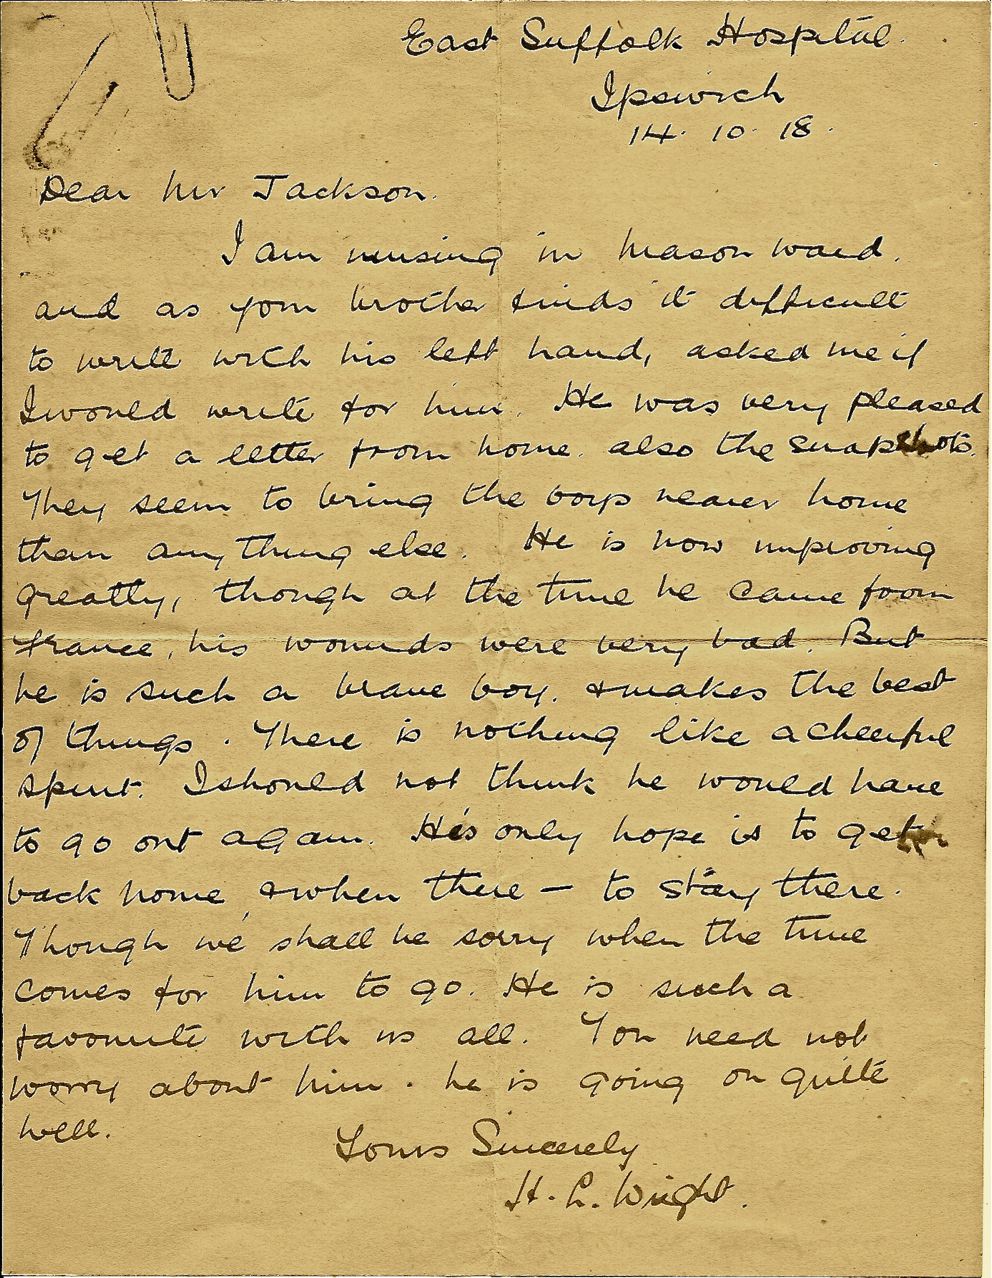 East Suffolk Hospital.
Ipswich
14. 10. 18.
Dear Mr Jackson.
I am nursing in Mason ward.
and as your brother finds it difficult
to write with his left hand, asked me if
I would write for him. He was very pleased
to get a letter from home. also the snapshots.
They seem to bring the boys nearer home
than anything else. He is now improving
greatly, though at the time he came from
France, his wounds were very bad. But
he is such a brave boy. & makes the best
of things. There is nothing like a cheerful
spirit. I should not think he would have
to go out again. His only hope is to get
back home, & when there — to stay there.
Though we shall be sorry when the time
comes for him to go. He is such a
favourite with us all. You need not
worry about him. he is going on quite
well.
Yours Sincerely
H. L. Wright.